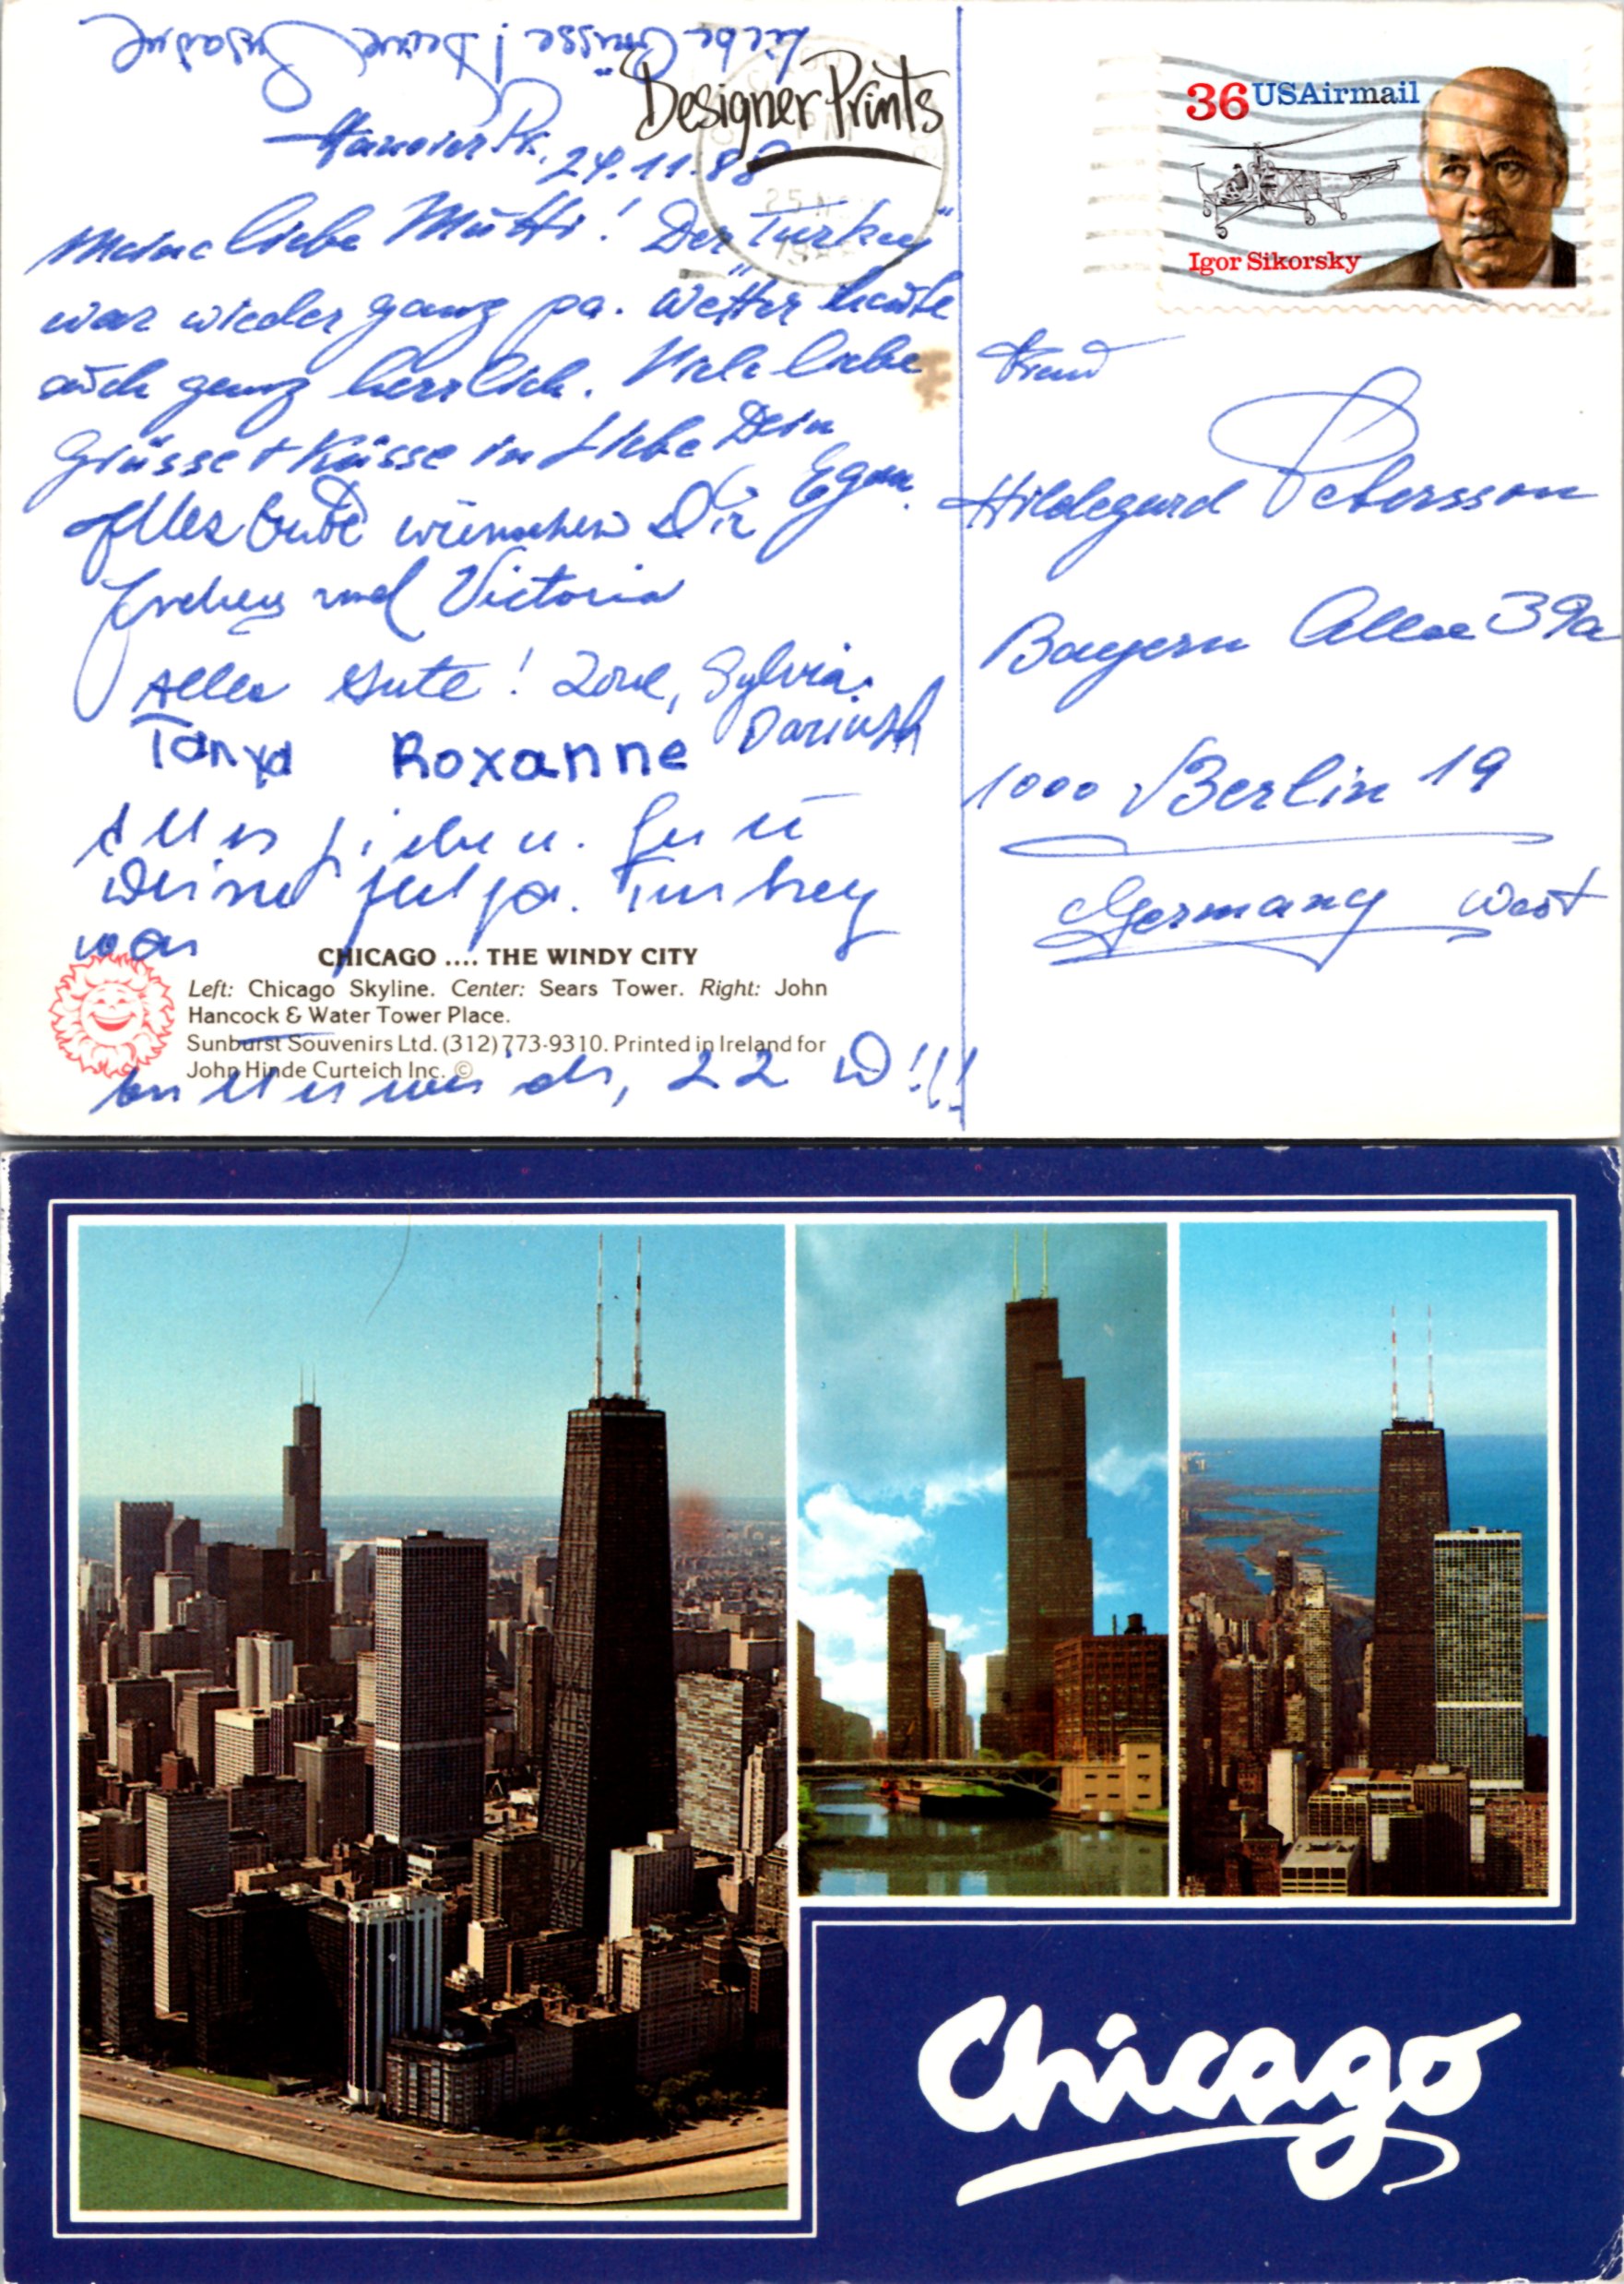 Liebe Grüsse! Deine Susanne
Designer Prints
Hanover Pk. 24.11.88
25 N
Meine liebe Mutti! Der "Turkey"
war wieder ganz pa. Wetter heute
auch ganz herrlich. Viele liebe
Grüsse + Küsse in Liebe Dein
Egon.
Alles Gute wünschen Dir
und Victoria
Alles Gute! Sylvia.
Dariush
Tanya Roxanne
Alles Liebe u. Gute
Deine Turkey
war
22
CHICAGO .... THE WINDY CITY
Left: Chicago Skyline. Center: Sears Tower. Right: John
Hancock & Water Tower Place.
Sunburst Souvenirs Ltd. (312) 773-9310. Printed in Ireland for
John Hinde Curteich Inc. ©
36 USAirmail
Igor Sikorsky
Frau
Hildegard Petersson
Bayern Allee 39a
1000 Berlin 19
Germany West
Chicago